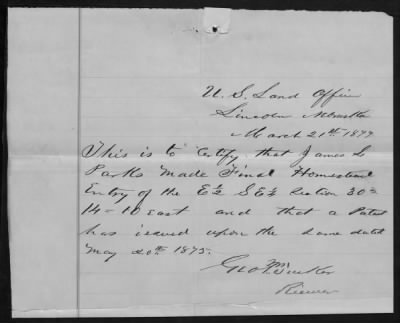 U. S. Land Office
Lincoln Nebraska
March 21st 1877
This is to Certify that James L
Parks Made Final Homestead
Entry of the E½ SE¼ Section 30=
14=10 east and that a Patent
has issued upon the same dated
May 20th 1875.
Geo. W.